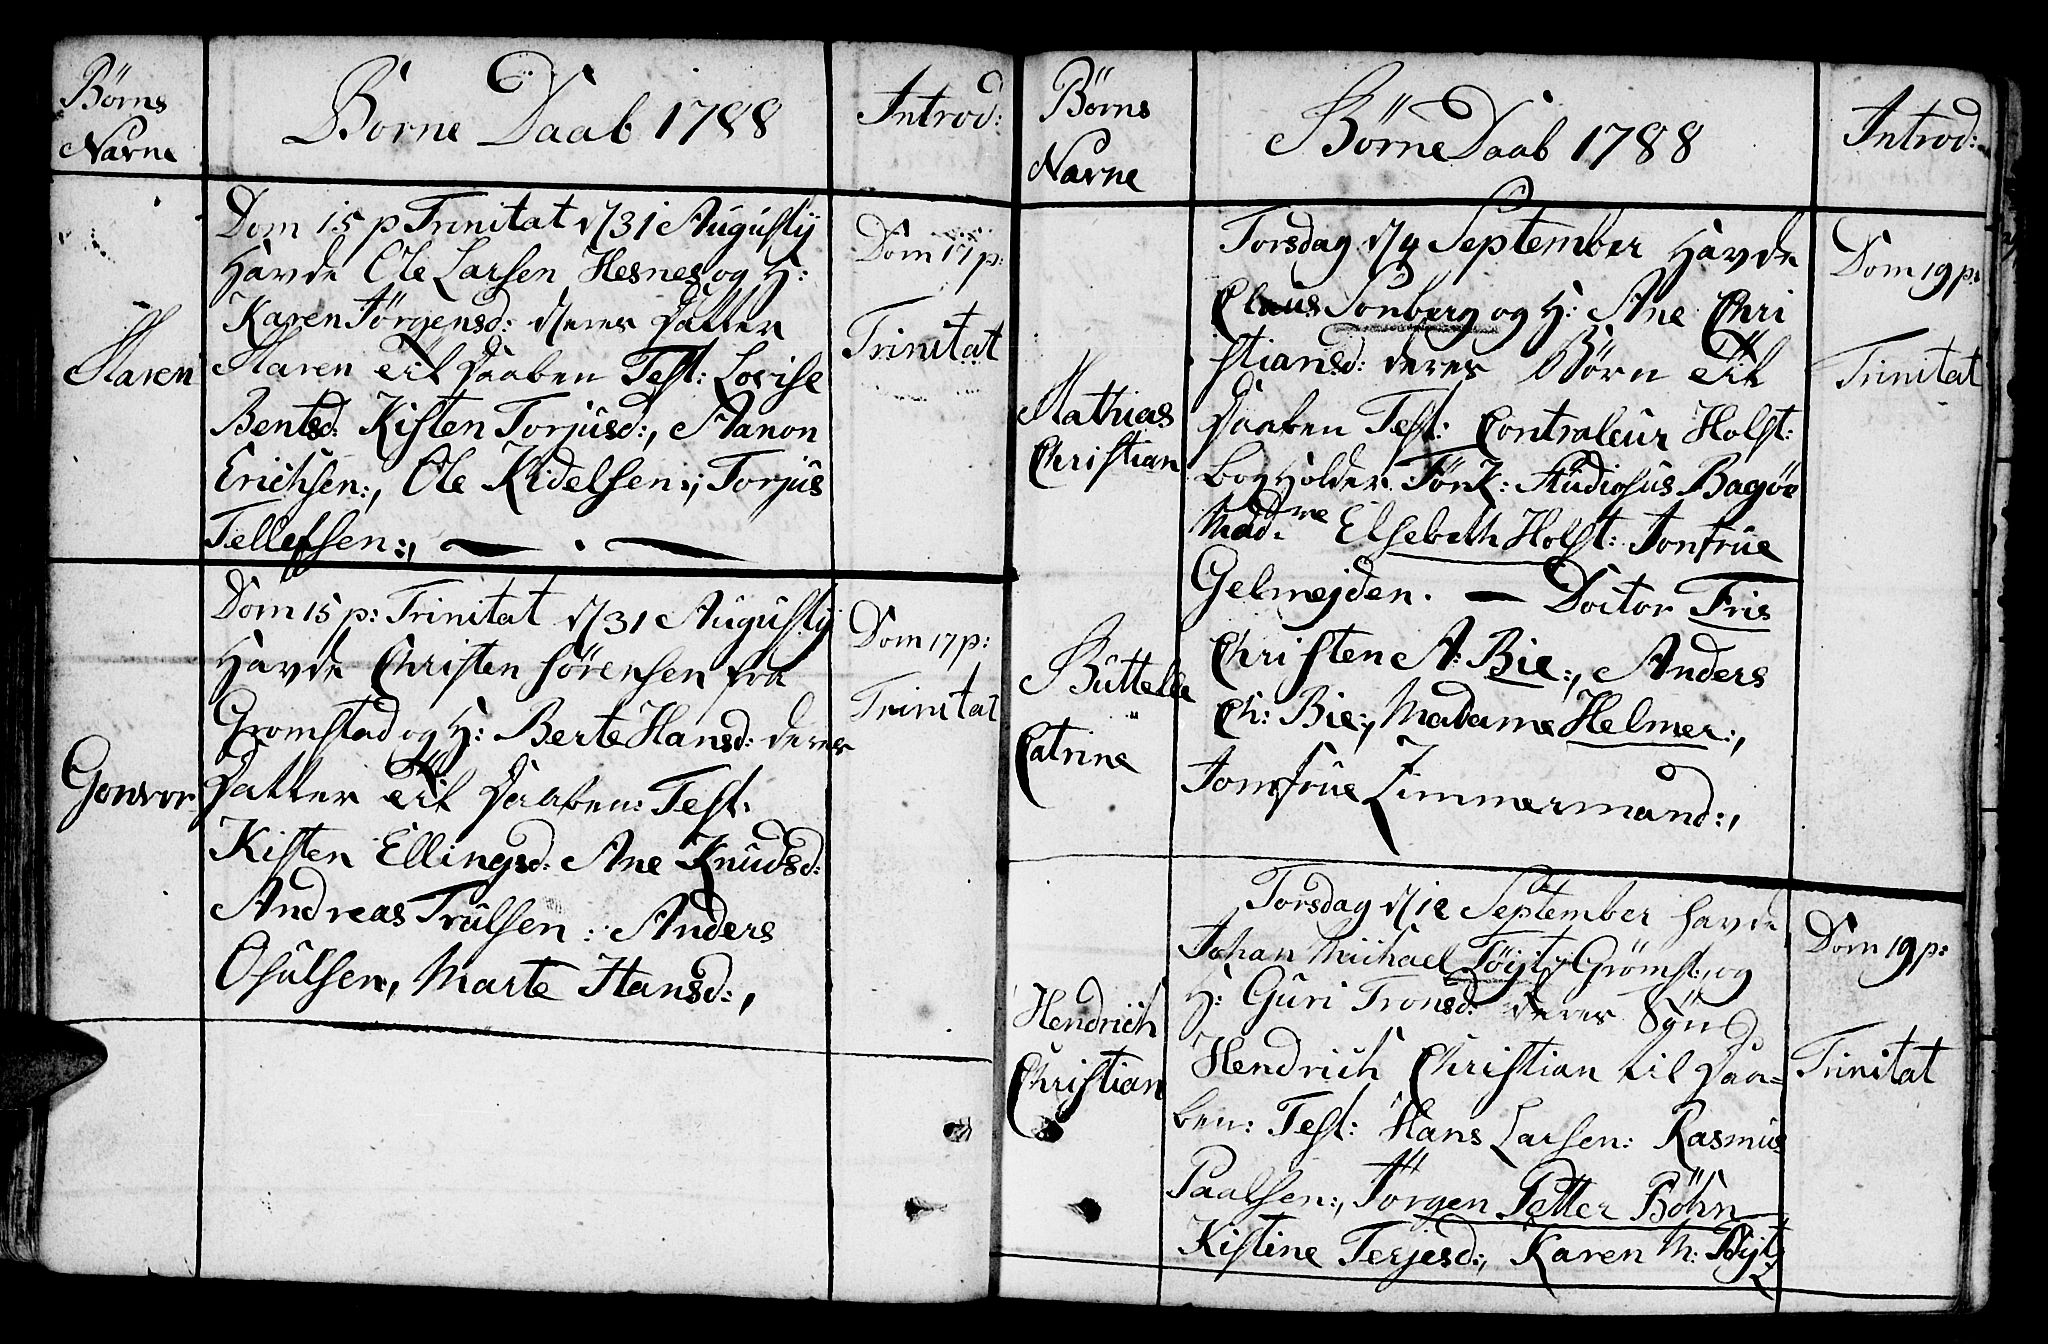 Börns
Navne
Börne Daab 1788
Introd:
Maren
Dom 15 p Trinitat d/31 Augustij
Havde Ole Larsen Hesnes og H:
Karen Jörgensd: deres Datter
Maren til Daaben Test: Lovise
Bentsd: Kisten Torjusd:, Aanon
Erichsen:, Ole Kidelsen:, Torjus
Tellefsen:,
Dom 17 p:
Trinitat
Gonvor
Dom 15 p: Trinitat d/31 Augustij
Havde Christen Sörensen fra
Gromstad og H: Berte Hansd: deres
Datter til Daaben: Test:
Kisten Ellingsd: Ane Knudsd:
Andreas Trulsen: Anders
Osulsen, Marte Hansd:,
Dom 17 p:
Trinitat
Börns
Navne
Börne Daab 1788
Introd:
Mathias
Christian
Büttelle
Catrine
Torsdag d/4 September Havde
Claus Sonberg og H: Ane Chri
stiansd: deres Börn til
Daaben Test: Contraleur Holst:
Bogholder Fönk: Studiosus Bagöe
Madme Elsebeth Holst: Jonfrue
Gelmejden. — Doctor Fris
Christen A: Bie:, Anders
Ch: Bie:, Madame Helmer:,
Jomfrue Zimmermand:,
Dom 19 p:
Trinitat
Hendrich
Christian
Torsdag d/12 September havde
Johan Michael Töyt i Grömst:, og
H: Guri Tronsd: deres Sön
Hendrich Christian til Daa=
ben: Test: Hans Larsen: Rasmus
Paalsen:, Jörgen Petter Böhn
Kistine Terjesd:, Karen M: Töyt
Dom 19 p:
Trinitat